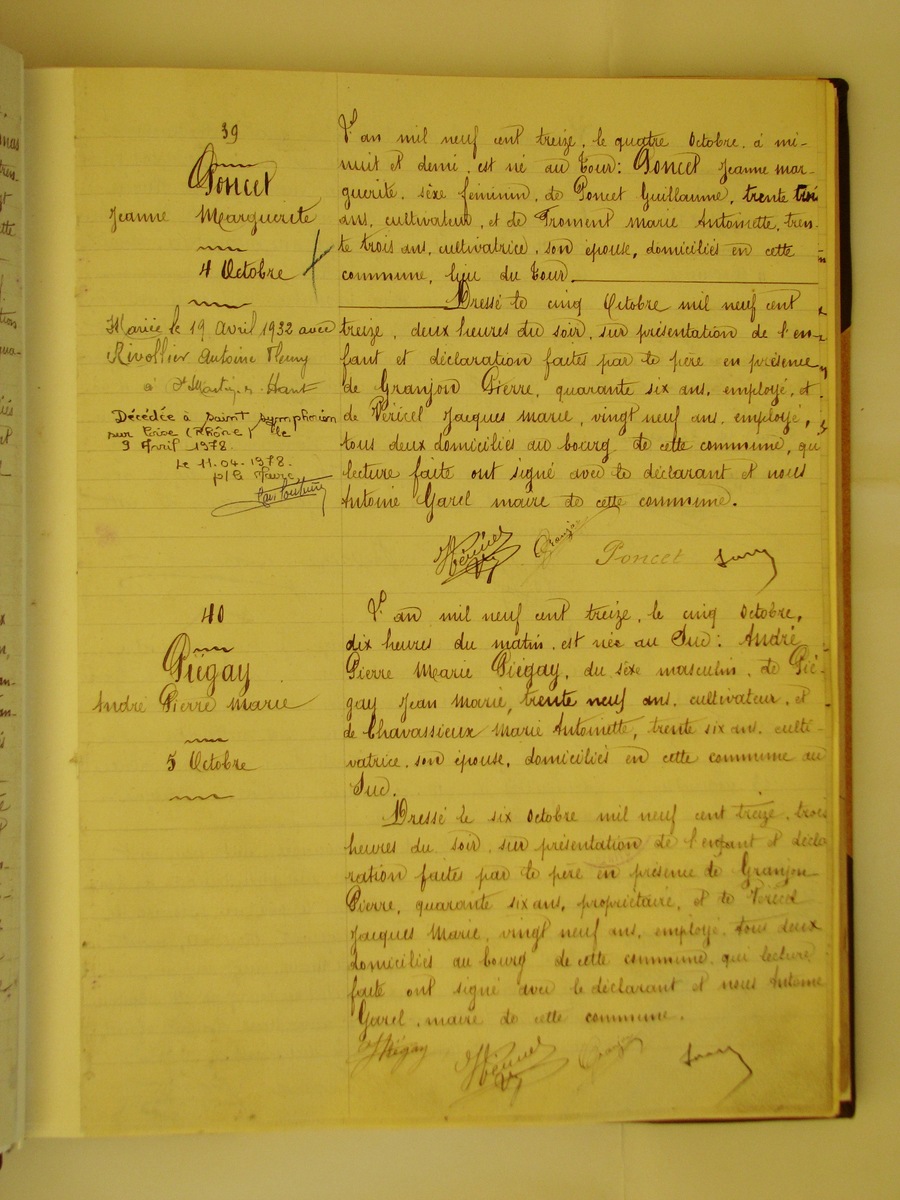 39
Poncet
Jeanne Marguerite
4 Octobre
Mariée le 19 Avril 1932 avec
Rivollier Antoine Fleury
à St Martin-en-Haut
Décédée à Saint Symphorien
sur Coise (Rhône) le
9 Avril 1978.
Le 11-04-1978.
p/le Maire
L'an mil neuf cent treize, le quatre Octobre, à mi-
nuit et demi, est né au Tour: Poncet Jeanne mar-
guerite, sexe féminin, de Poncet Guillaume, trente trois
ans, cultivateur, et de Froment marie Antoinette, tren-
te trois ans, cultivatrice, son épouse, domiciliés en cette
commune, lieu du Tour.
Dressé le cinq Octobre mil neuf cent
treize, deux heures du soir, sur présentation de l'en-
fant et déclaration faites par le père en présence
de Granjon Pierre, quarante six ans, employé, et
de Véricel Jacques marie, vingt neuf ans, employé,
tous deux domiciliés au bourg de cette commune, qui
lecture faite ont signé avec le déclarant et nous
Antoine Garel maire de cette commune.
Véricel Granjon Poncet Garel
40
Piégay
André Pierre Marie
5 Octobre
L'an mil neuf cent treize, le cinq Octobre,
dix heures du matin, est née au Suc: André
Pierre Marie Piégay, du sexe masculin, de Pié-
gay Jean Marie, trente neuf ans, cultivateur, et
de Chavassieux Marie Antoinette, trente six ans, culti-
vatrice, son épouse, domiciliés en cette commune au
Suc.
Dressé le six Octobre mil neuf cent treize, trois
heures du soir, sur présentation de l'enfant et décla
ration faites par le père en présence de Granjon
Pierre, quarante six ans, propriétaire, et de Véricel
Jacques Marie, vingt neuf ans, employé, tous deux
domiciliés au bourg de cette commune, qui lecture
faite ont signé avec le déclarant et nous Antoine
Garel, maire de cette commune.
Piégay Véricel Granjon Garel